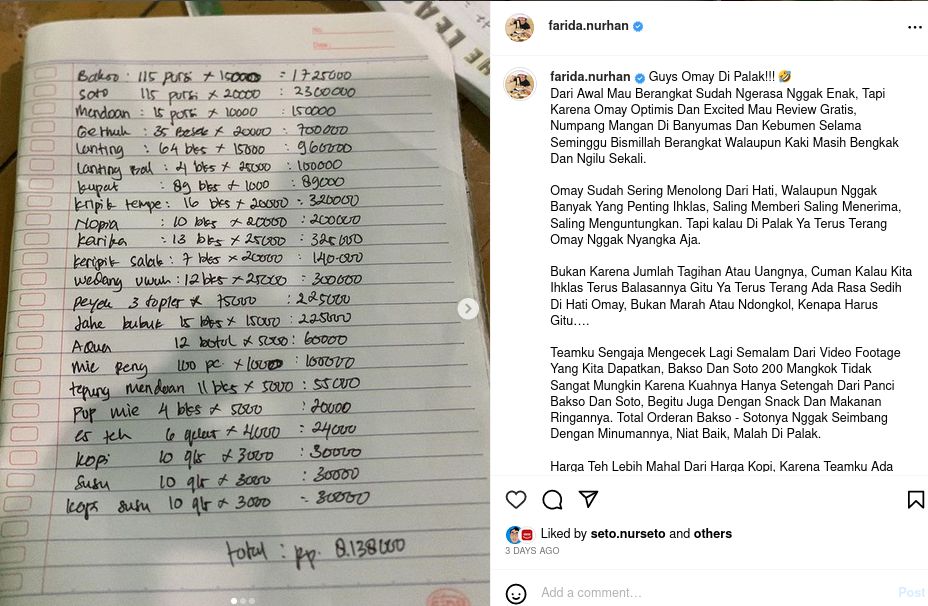 No.
Date.
Bakso : 115 porsi x 15000 : 1725000
Soto 115 porsi x 20000 : 2300000
Mendoan : 15 porsi x 10000 : 150000
Gethuk : 35 x 20000 : 700000
Lanting : 64 bks x 15000 : 960000
Lanting : 4 bks x 25000 : 100000
kupat : 89 bks x 1000 : 89000
kripik tempe : 16 bks x 20000 = 320000
Nopia : 10 bks x 20000 : 200000
karika : 13 bks x 25000 : 325000
keripik salak : 7 bks x 20000 : 140.000
wedang uwuh : 12 bks x 25000 : 300000
peyek 3 toples x 75000 : 225000
Jahe bubuk 15 bks x 15000 : 225000
Aqua 12 botol x 5000 : 60000
mie 100 pc x : 100000
tepung mendoan 11 bks x 5000 : 55000
Pop mie 4 bks x 5000 : 20000
es teh 6 x 4000 : 24000
kopi 10 gls x 3000 : 30000
susu 10 gls x 3000 : 30000
kopi susu 10 gls x 3000 = 30000
total : Rp. 8.138000
farida.nurhan
farida.nurhan Guys Omay Di Palak!!! 🤣
Dari Awal Mau Berangkat Sudah Ngerasa Nggak Enak, Tapi
Karena Omay Optimis Dan Excited Mau Review Gratis,
Numpang Mangan Di Banyumas Dan Kebumen Selama
Seminggu Bismillah Berangkat Walaupun Kaki Masih Bengkak
Dan Ngilu Sekali.
Omay Sudah Sering Menolong Dari Hati, Walaupun Nggak
Banyak Yang Penting Ihklas, Saling Memberi Saling Menerima,
Saling Menguntungkan. Tapi kalau Di Palak Ya Terus Terang
Omay Nggak Nyangka Aja.
Bukan Karena Jumlah Tagihan Atau Uangnya, Cuman Kalau Kita
Ihklas Terus Balasannya Gitu Ya Terus Terang Ada Rasa Sedih
Di Hati Omay, Bukan Marah Atau Ndongkol, Kenapa Harus
Gitu....
Teamku Sengaja Mengecek Lagi Semalam Dari Video Footage
Yang Kita Dapatkan, Bakso Dan Soto 200 Mangkok Tidak
Sangat Mungkin Karena Kuahnya Hanya Setengah Dari Panci
Bakso Dan Soto, Begitu Juga Dengan Snack Dan Makanan
Ringannya. Total Orderan Bakso - Sotonya Nggak Seimbang
Dengan Minumannya, Niat Baik, Malah Di Palak.
Harga Teh Lebih Mahal Dari Harga Kopi, Karena Teamku Ada
Liked by seto.nurseto and others
3 DAYS AGO
Add a comment...
Post